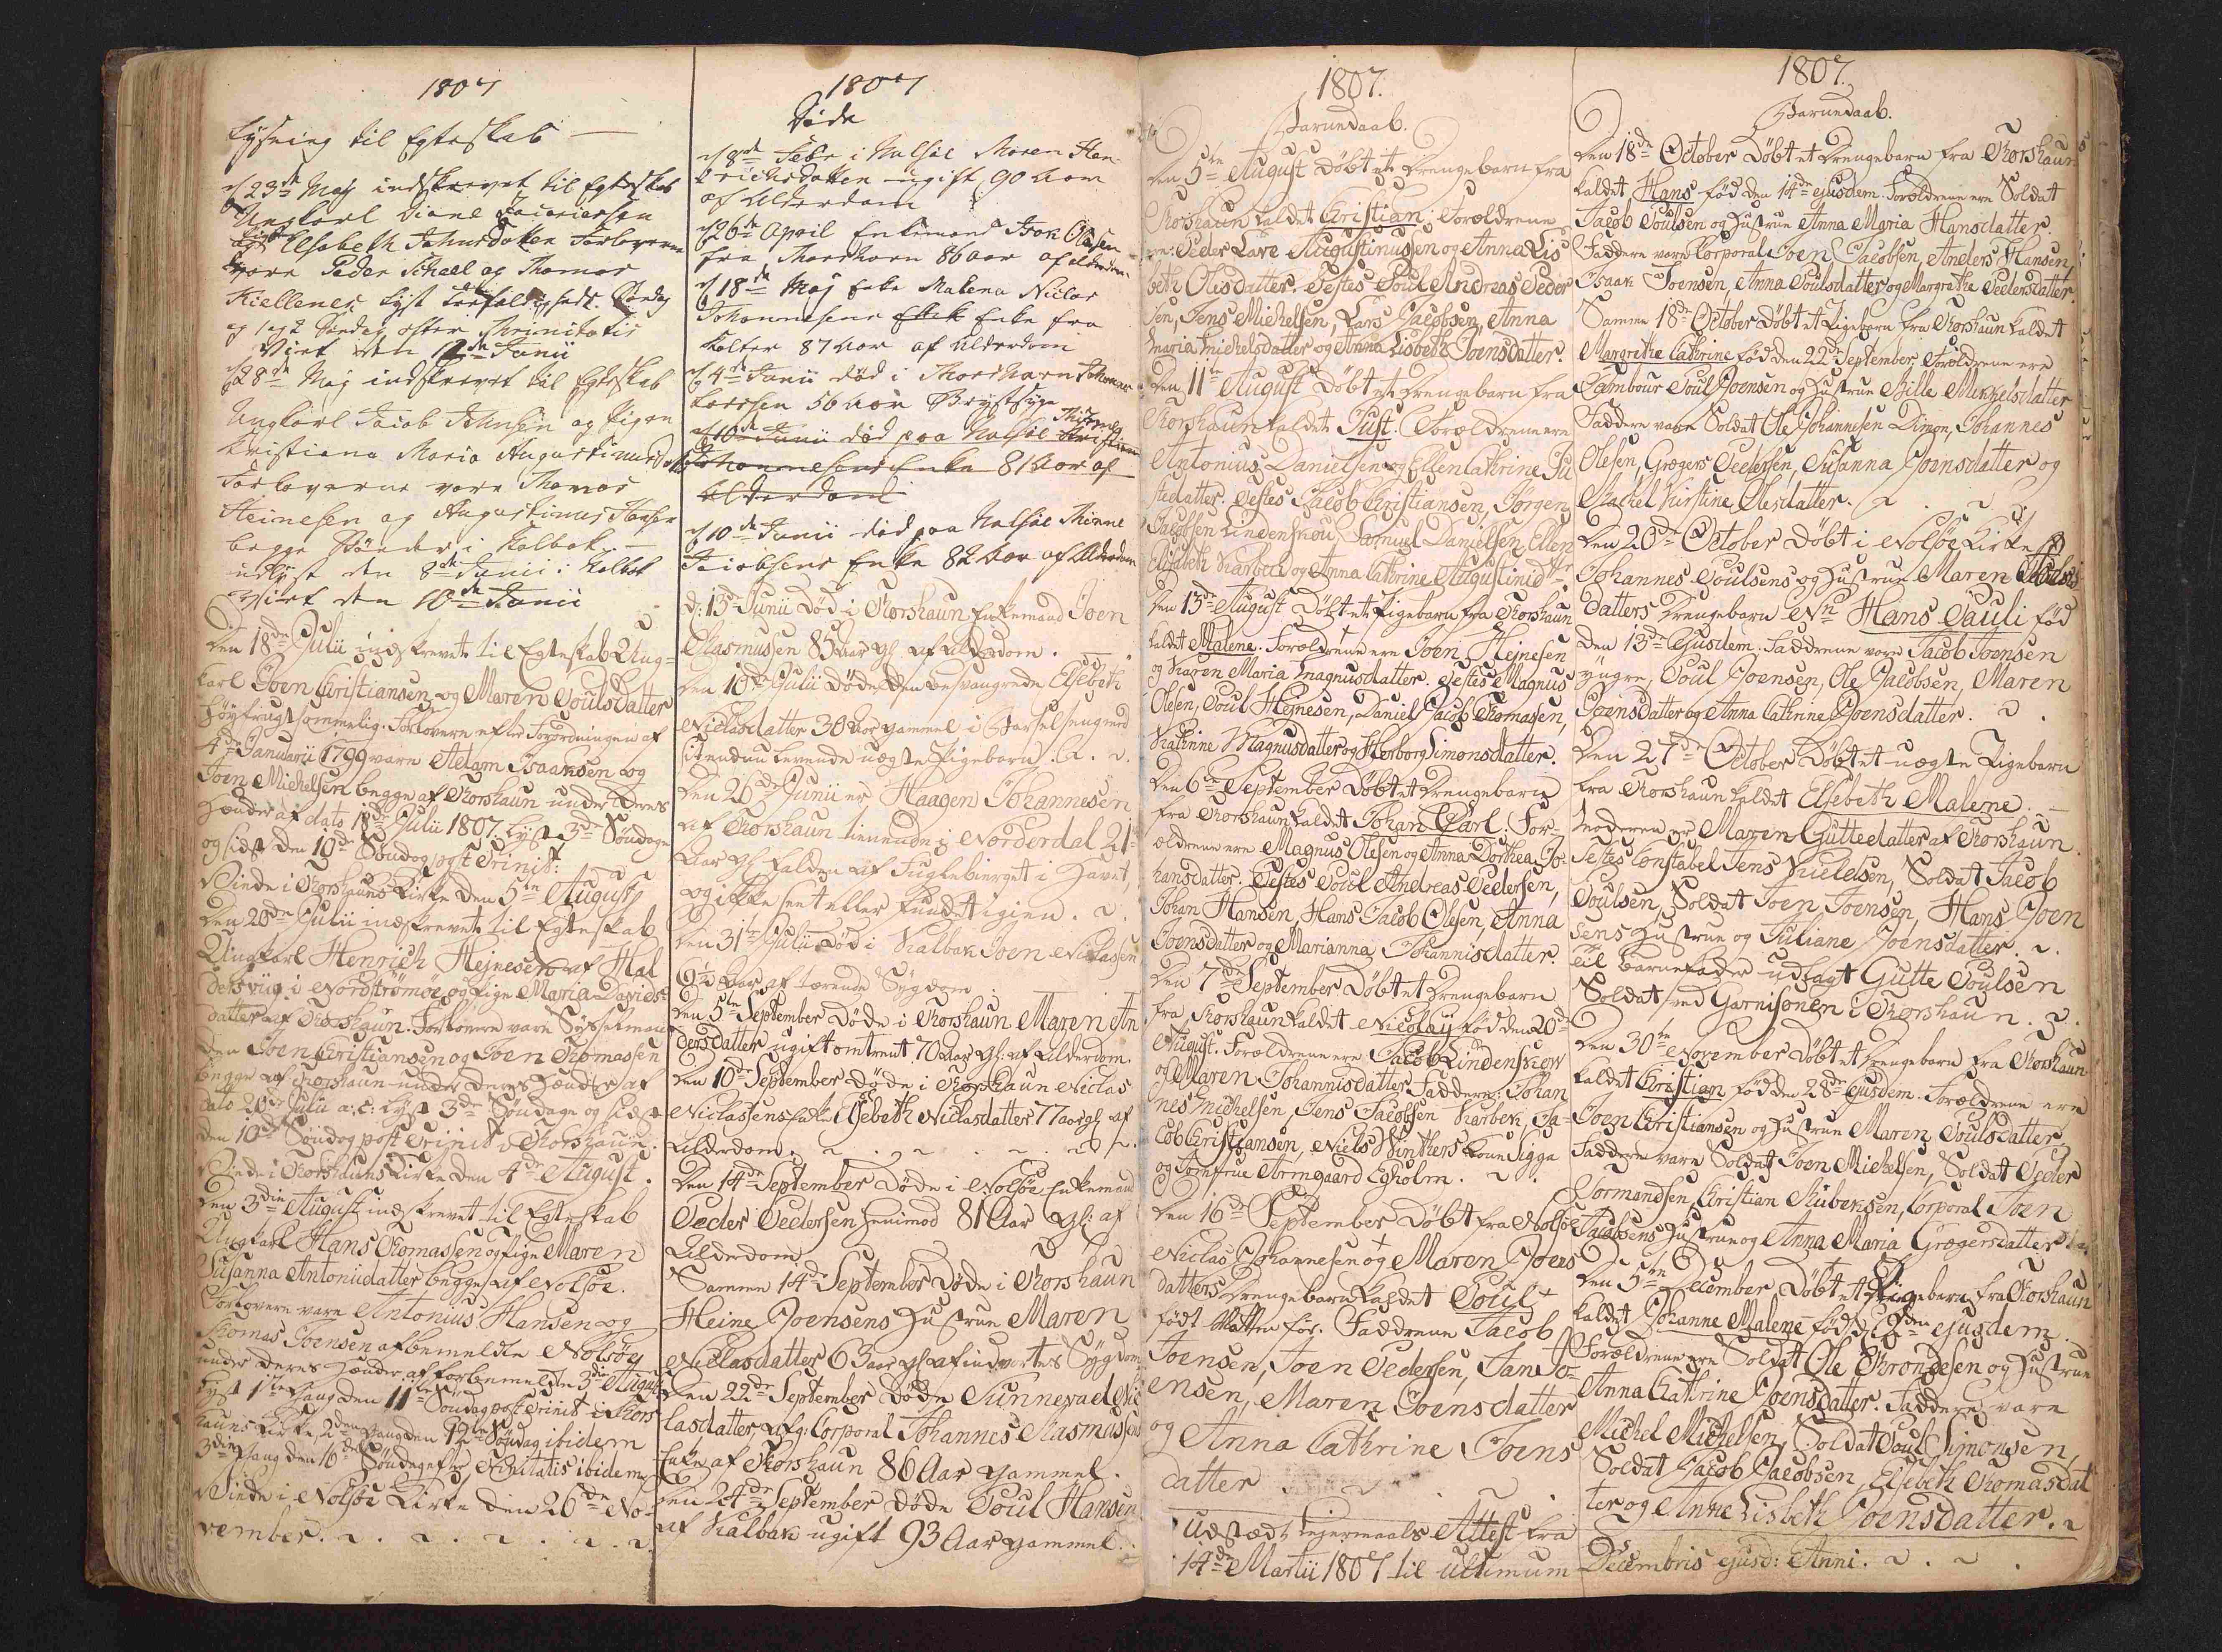 1807
Lysning til Egteskab
d 23de Maj indskrevet til Egteskab
Ungkarl
Elsabeth Johnsdatter Forloverne
vare Peder Schaal og Thomas
Kiellenes lyst Trefoldigheds Søndag
og 1 og 2 Søndag efter Thrinitatis
Viet den 12te Junii
d 28de Maj indskrevet til Egteskab
Ungkarl Jacob Johnsen og Pigen
Kristiana Maria Augustinusd
Forloverne vare Thomas
Heinesen og Augustinus Hansen
begge Bønder i Kalbak
udlyst den 8de Junii i Kalbak
Viet den 10de Junii
Den 18de Julii indskrevet til Egteskab Ung=
karl Joen Christiansen og Maren Poulsdatter
høyfrugtsommelig. Forlovere efter Forordningen af
4de Januarii 1799 vare Adam Isaaksen og
Joen Michelsen begge af Thorshaun under deres
Hænder af dato 18de Julii 1807. Lyst 3de Søndage
og sidst den 10de Søndag post Trinit:
Viede i Thorshauns Kirke den 5te August
Den 20de Julii indskrevet til Egteskab
Ungkarl Henrich Hejnesen af Hal
dersviig i Nordstrømøe og Pige Maria Davids=
datter af Thorshaun. Forlovere vare Sysselman
den Joen Christiansen og Joen Thomassen
begge af Thorshaun under deres Hænder af
dato 20de Julii a: c: lyst 3de Søndage og sidst
den 10de Søndag post Trinit: i Thorshaun.
Viede i Thorshauns Kirke den 4de August.
Den 3die August indskrevet til Egteskab
Ungkarl Hans Thomassen og Pige Maren
Susanna Antoniidatter begge af Nolsøe.
Forlovere vare Antonius Hansen og
Thomas Joensen af bemeldte Nolsøe
under deres Hænder af forbemeldte 3die August
lyst 1te Gang den 11te Søndag post Trinit i Thors
hauns Kirke, 2den Gang den 12te Søndag ibidem
3die Gang den 16de Søndag efter Trinitatis ibidem
Viede i Nolsøe Kirke den 26de No-
vember.
1807
Døde
d 8de Febr i Nalsøe Maren Hen-
drichsdatter ugift 90 Aar
af Alderdom
d 26de April Enkemand Isak Olesen
fra Thorshavn 86 aar af alderdom
d 18de Maj Enke Malena Niclas
Johannesens Enke fra
Kolter 87 Aar af Alderdom
d 4de Junii død i Thorshavn Johannes
Larsen 56 Aar Brystsyge
d 10de Junii død paa Nalsøe
Johannesens Enke 81 Aar af
Alderdom
d 10de Junii død paa Nalsøe Thinne
Jacobsens Enke 82 Aar af Alderdom
d: 13de Junii Død i Thorshaun Enkemand Joen
Rasmussen 85 Aar gl. af Alderdom.
Den 10de Julii Døde den besvangrede Elsebeth
Niclasdatter 30 Aar gammel i Barselseng med
Den 26de Junii er Haagen Johannesen
af Thorshaun tienende i Norderdal 21
Aar gl. falden af Fuglebierget i Havet,
og ikke seet eller fundet igien.
Den 31te Julii Død i Kalbak Joen Niclassen
6½ Aar af tærende Sygdom
Den 5te September Døde i Thorshaun Maren An
dersdatter ugift omtrent 70 Aar gl: af Alderdom.
Den 10de September Døde i Thorshaun Niclas
Niclassens Enke Elsebeth Niclasdatter 77 aar gl. af
Alderdom.
Den 14de September Døde i Nolsøe Enkemand
Peder Pedersen henimod 81 Aar gl: af
Alderdom
Samme 14de September Døde i Thorshaun
Heine Joensens Hustrue Maren
Niclasdatter 63 aar gl. af indvortes Sygdom
Den 22de September Døde Sunneva Nic
lasdatter, afg: Corporal Johannes Rasmussens
Enke af Thorshaun 86 Aar gammel.
Den 24de September Døde Poul Hansen
af Kalbak ugift 93 Aar gammel.
1807.
Barnedaab.
Den 5te August Døbt et Drengebarn fra
Thorshaun kaldet Christian. Forældrene
ere Peder Lave Augustinussen og Anna Lis
beth Olisdatter. Testes Poul Andreas Peder
sen, Jens Michelsen, Lars Jacobsen, Anna
Maria Michelsdatter og Anna Lisbeth Joensdatter.
Den 11te August Døbt et Drengebarn fra
Thorshaun kaldet Just. Forældrene ere
Antonius Danielsen og Ellen Cathrine Ju
stedatter. Testes Jacob Christiansen, Jørgen
Jacobsen Lindenskou, Samuel Danielsen, Ellen
Elisabeth Karbech og Anna Cathrine Augustinid
Den 13de August Døbt et Pigebarn fra Thorshaun
kaldet Malene. Forældrene ere Joen Hejnesen
og Karen Maria Magnusdatter. Testes Magnus
Olesen, Poul Hejnesen, Daniel Jacob Thomassen,
Kathrine Magnusdatter og Herborg Simonsdatter.
Den 6te September Døbt et Drengebarn
fra Thorshaun kaldet Johan Carl. For-
ældrene ere Magnus Olesen og Anna Dorthea Jo-
hansdatter. Testes Poul Andreas Pedersen,
Johan Hansen, Hans Jacob Olesen, Anna
Joensdatter og Marianna Johannisdatter.
Den 7de September Døbt et Drengebarn
fra Thorshaun kaldet Nicolaij født den 20de
August. Forældrene ere Jacob Lindenskow
og Maren Johannisdatter. Faddere: Johan
nes Michelsen, Jens Jacobsen Karbek, Ja-
cob Christiansen, Niels Winthers Kone Sigga
og Jomfrue Armgaard Egholm.
Den 16de September Døbt fra Nolsøe
Niclas Johannesen og Maren Joens
datters Drengebarn kaldet Poul
født Natten før. Faddrene Jacob
Joensen, Joen Pedersen, Jan Jo-
ensen, Maren Joensdatter
og Anna Cathrine Joens
datter
Udstædt Lejermaals Attest fra
14de Martii 1807 til ultimum
1807.
Barnedaab.
Den 18de October Døbt et Drengebarn fra Thorshaun
kaldet Hans fød den 14de ejusdem. Forældrene ere Soldat
Jacob Poulsen og Hustrue Anna Maria Hansdatter.
Faddere vare Korporal Joen Jacobsen, Anders Hansen,
Isaak Joensen, Anna Poulsdatter og Margrethe Pedersdatter.
Samme 18de October Døbt et Pigebarn fra Thorshaun kaldet
Margrethe Cathrine fød den 22de September Forældrene ere
Tambour Poul Joensen og Hustrue Bille Michelsdatter
Faddere vare Soldat Ole Johannesen Dimon, Johannes
Olesen, Grægers Pedersen, Susanna Joensdatter og
Rachel Kirstine Olesdatter.
Den 20de October Døbt i Nolsøe Kirke
Johannes Poulsens og Hustrue Maren
datters Drengebarn Nn Hans Pauli fød
den 13de Ejusdem. Faddrene vare Jacob Joensen
yngre, Poul Joensen, Ole Jacobsen, Maren
Joensdatter og Anna Cathrine Joensdatter.
Den 27de October Døbt et uægte Pigebarn
fra Thorshaun kaldet Elsebeth Malene.
Moderen er Maren Guttedatter af Thorshaun.
Testes Constabel Jens Kielelsen, Soldat Jacob
Poulsen, Soldat Joen Joensen, Hans Joen
sens Hustrue og Juliane Joensdatter.
Til Barnefader udlagt Gutte Poulsen
Soldat ved Garnisonen i Thorshaun.
Den 30te November Døbt et Drengebarn fra Thorshaun
kaldet Christian fød den 28de Ejusdem. Forældrene ere
Joen Christiansen og Hustrue Maren Poulsdatter
Faddere vare Soldat Joen Michelsen, Soldat Peder
Gormandsen, Christian Rubeksen, Corporal Joen
Jacobsens Hustrue og Anna Maria Grægersdatter
Den 5te December Døbt et Pigebarn fra Thorshaun
kaldet Johanne Malene født ejusdem.
Forældrene ere Soldat Ole Throndesen og Hustrue
Anna Cathrine Joensdatter. Faddere vare
Michel Michelsen, Soldat Poul Simonsen,
Soldat Jacob Jacobsen, Elsebeth Thomasdat
ter og Anne Lisbeth Joensdatter.
Decembris ejusd: Anni.